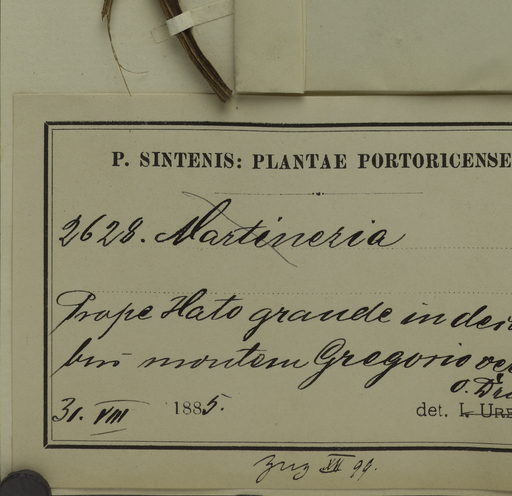 P. SINTENIS: PLANTAE PORTORICENSE
2628. Martineria
Prope Hato grande in
montem Gregorio
O. Dr
31. VIII 1885.
det. I. URB
XII 99.